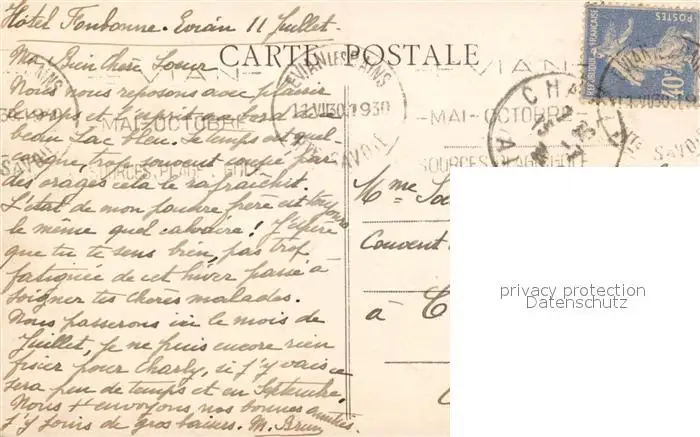 Hôtel Fonbonne. Evian 11 Juillet.
CARTE POSTALE
Ma Bien chère Soeur
Nous nous reposons avec plaisir
le corps et l'esprit au bord de ce
beau Lac bleu. Le temps est quel-
que trop souvent coupé par
des orages cela le rafraîchit.
L'état de mon pauvre frère est toujours
le même quel calvaire ! J'espère
que tu te sens bien, pas trop
fatiguée de cet hiver passé à
soigner tes chères malades.
Nous passerons ici le mois de
Juillet, je ne puis encore rien
fixer pour Charly, si j'y vais ce
sera peu de temps et en Septembre,
Nous t'envoyons nos bonnes amitiés
J'y joins de gros baisers. M. Brun
EVIAN LES BAINS
11 VII 30 1930
HTE SAVOIE
EVIAN
MAI-OCTOBRE
SOURCES. PLAGE. GOLF
MAI-OCTOBRE
SOURCES. PLAGE. GOLF
REPUBLIQUE FRANÇAISE
POSTES
40c
Mme
Couvent
à
privacy protection
Datenschutz